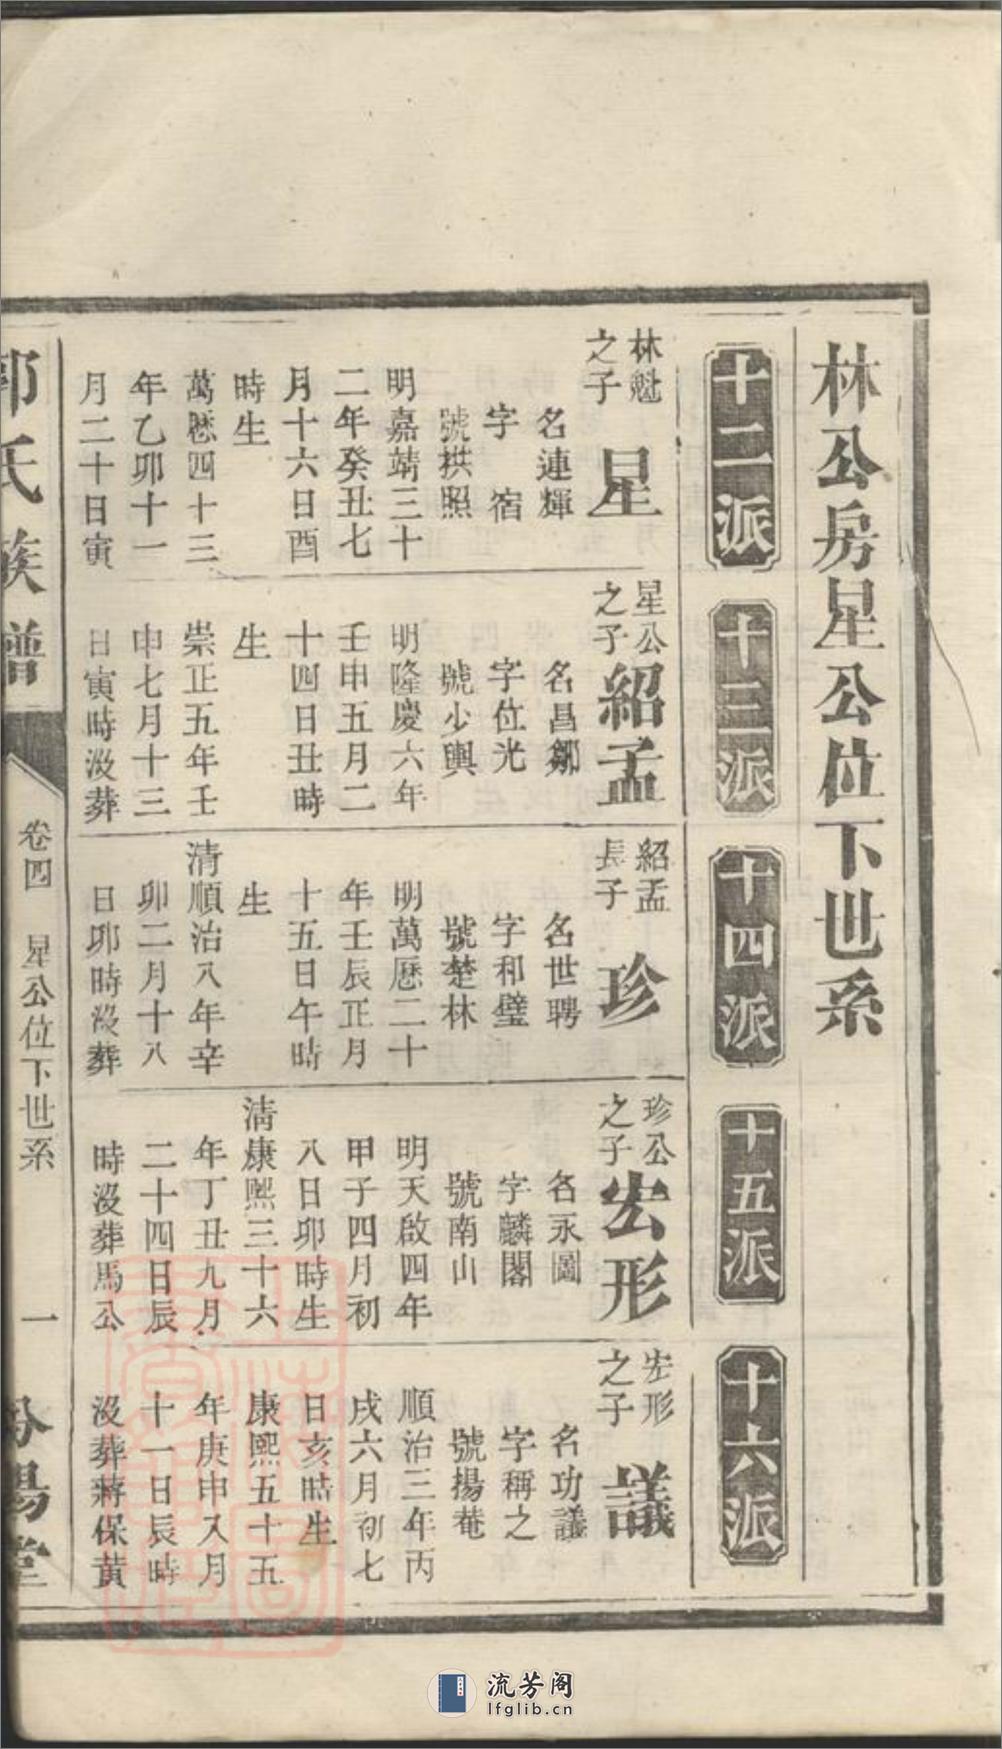 林公房星公位下世系
十二派
林魁
之子
星
名連輝
字宿
號拱照
明嘉靖三十
二年癸丑七
月十六日酉
時生
萬懸四十三
年乙卯十一
月二十日寅
十三派
星公
之子
紹孟
名昌鄒
字位光
號少輿
明隆慶六年
壬申五月二
十四日丑時
生
崇正五年壬
申七月十三
日寅時沒葬
十四派
紹孟
長子
珍
名世聘
字和璧
號楚林
明萬厯二十
年壬辰正月
十五日午時
生
清順治八年辛
卯二月十八
日卯時沒葬
十五派
珍公
之子
宏形
名永圖
字麟閣
號南山
明天啟四年
甲子四月初
八日卯時生
清康熙三十六
年丁丑九月
二十四日辰
時沒葬馬公
十六派
宏形
之子
議
名功議
字稱之
號揚菴
順治三年丙
戌六月初七
日亥時生
康熙五十五
年庚申八月
十一日辰時
沒葬蔣保黃
郭氏族譜
卷四 星公位下世系 一
汾陽堂
流芳阁
lfglib.cn